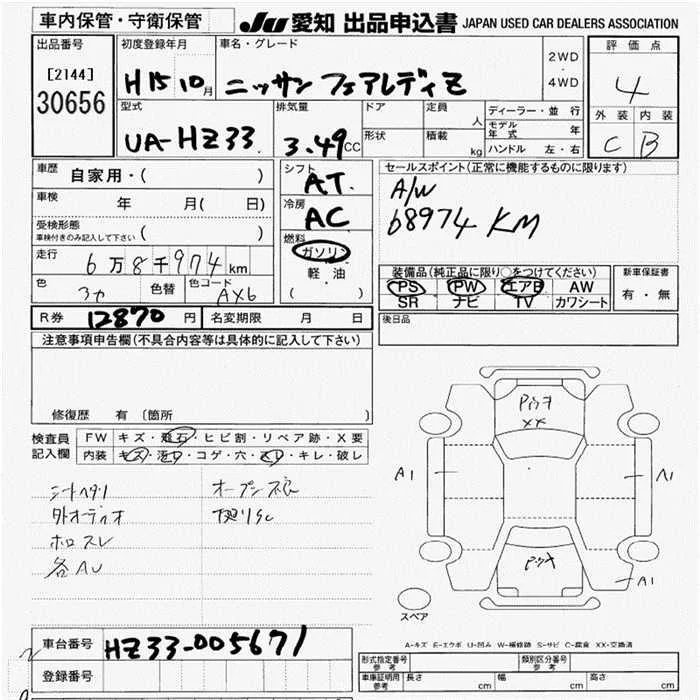 車内保管・守衛保管
JU 愛知 出品申込書 JAPAN USED CAR DEALERS ASSOCIATION
出品番号
[2144]
30656
初度登録年月
H15 10月
車名・グレード
ニッサン フェアレディZ
2WD
・
4WD
評価点
4
外装 内装
C B
型式
UA-HZ33
排気量
3.49CC
ドア
形状
定員
人
積載
kg
ディーラー・並行
モデル年式 年
ハンドル 左・右
車歴
自家用・( )
車検
年 月( 日)
受検形態
車検付きのみ記入して下さい ( )
走行
6万8千974km
色
色替
色コード
AX6
シフト
A.T.
冷房
AC
燃料
ガソリン
軽油
( )
セールスポイント(正常に機能するものに限ります)
A/W
68974KM
装備品(純正品に限り○をつけてください)
PS PW エアB AW
SR ナビ TV カワシート
新車保証書
有・無
R券 12870円 名変期限 月 日
後日品
注意事項申告欄(不具合内容等は具体的に記入して下さい)
修復歴 有 〔箇所 〕
検査員
記入欄
FW キズ・飛石・ヒビ割・リペア跡・X要
内装 キズ・汚れ・コゲ・穴・スレ・キレ・破レ
シートヘタリ
外オーディオ
ホロスレ
各AU
XX
A1
A1
A1
スペア
A-キズ E-エクボ U-凹み W-補修跡 S-サビ C-腐食 XX-交換済
車台番号 HZ33-005671
登録番号
型式指定番号
参考
類別区分番号
参考
車庫証明用
参考
長さ cm 幅 cm 高さ cm